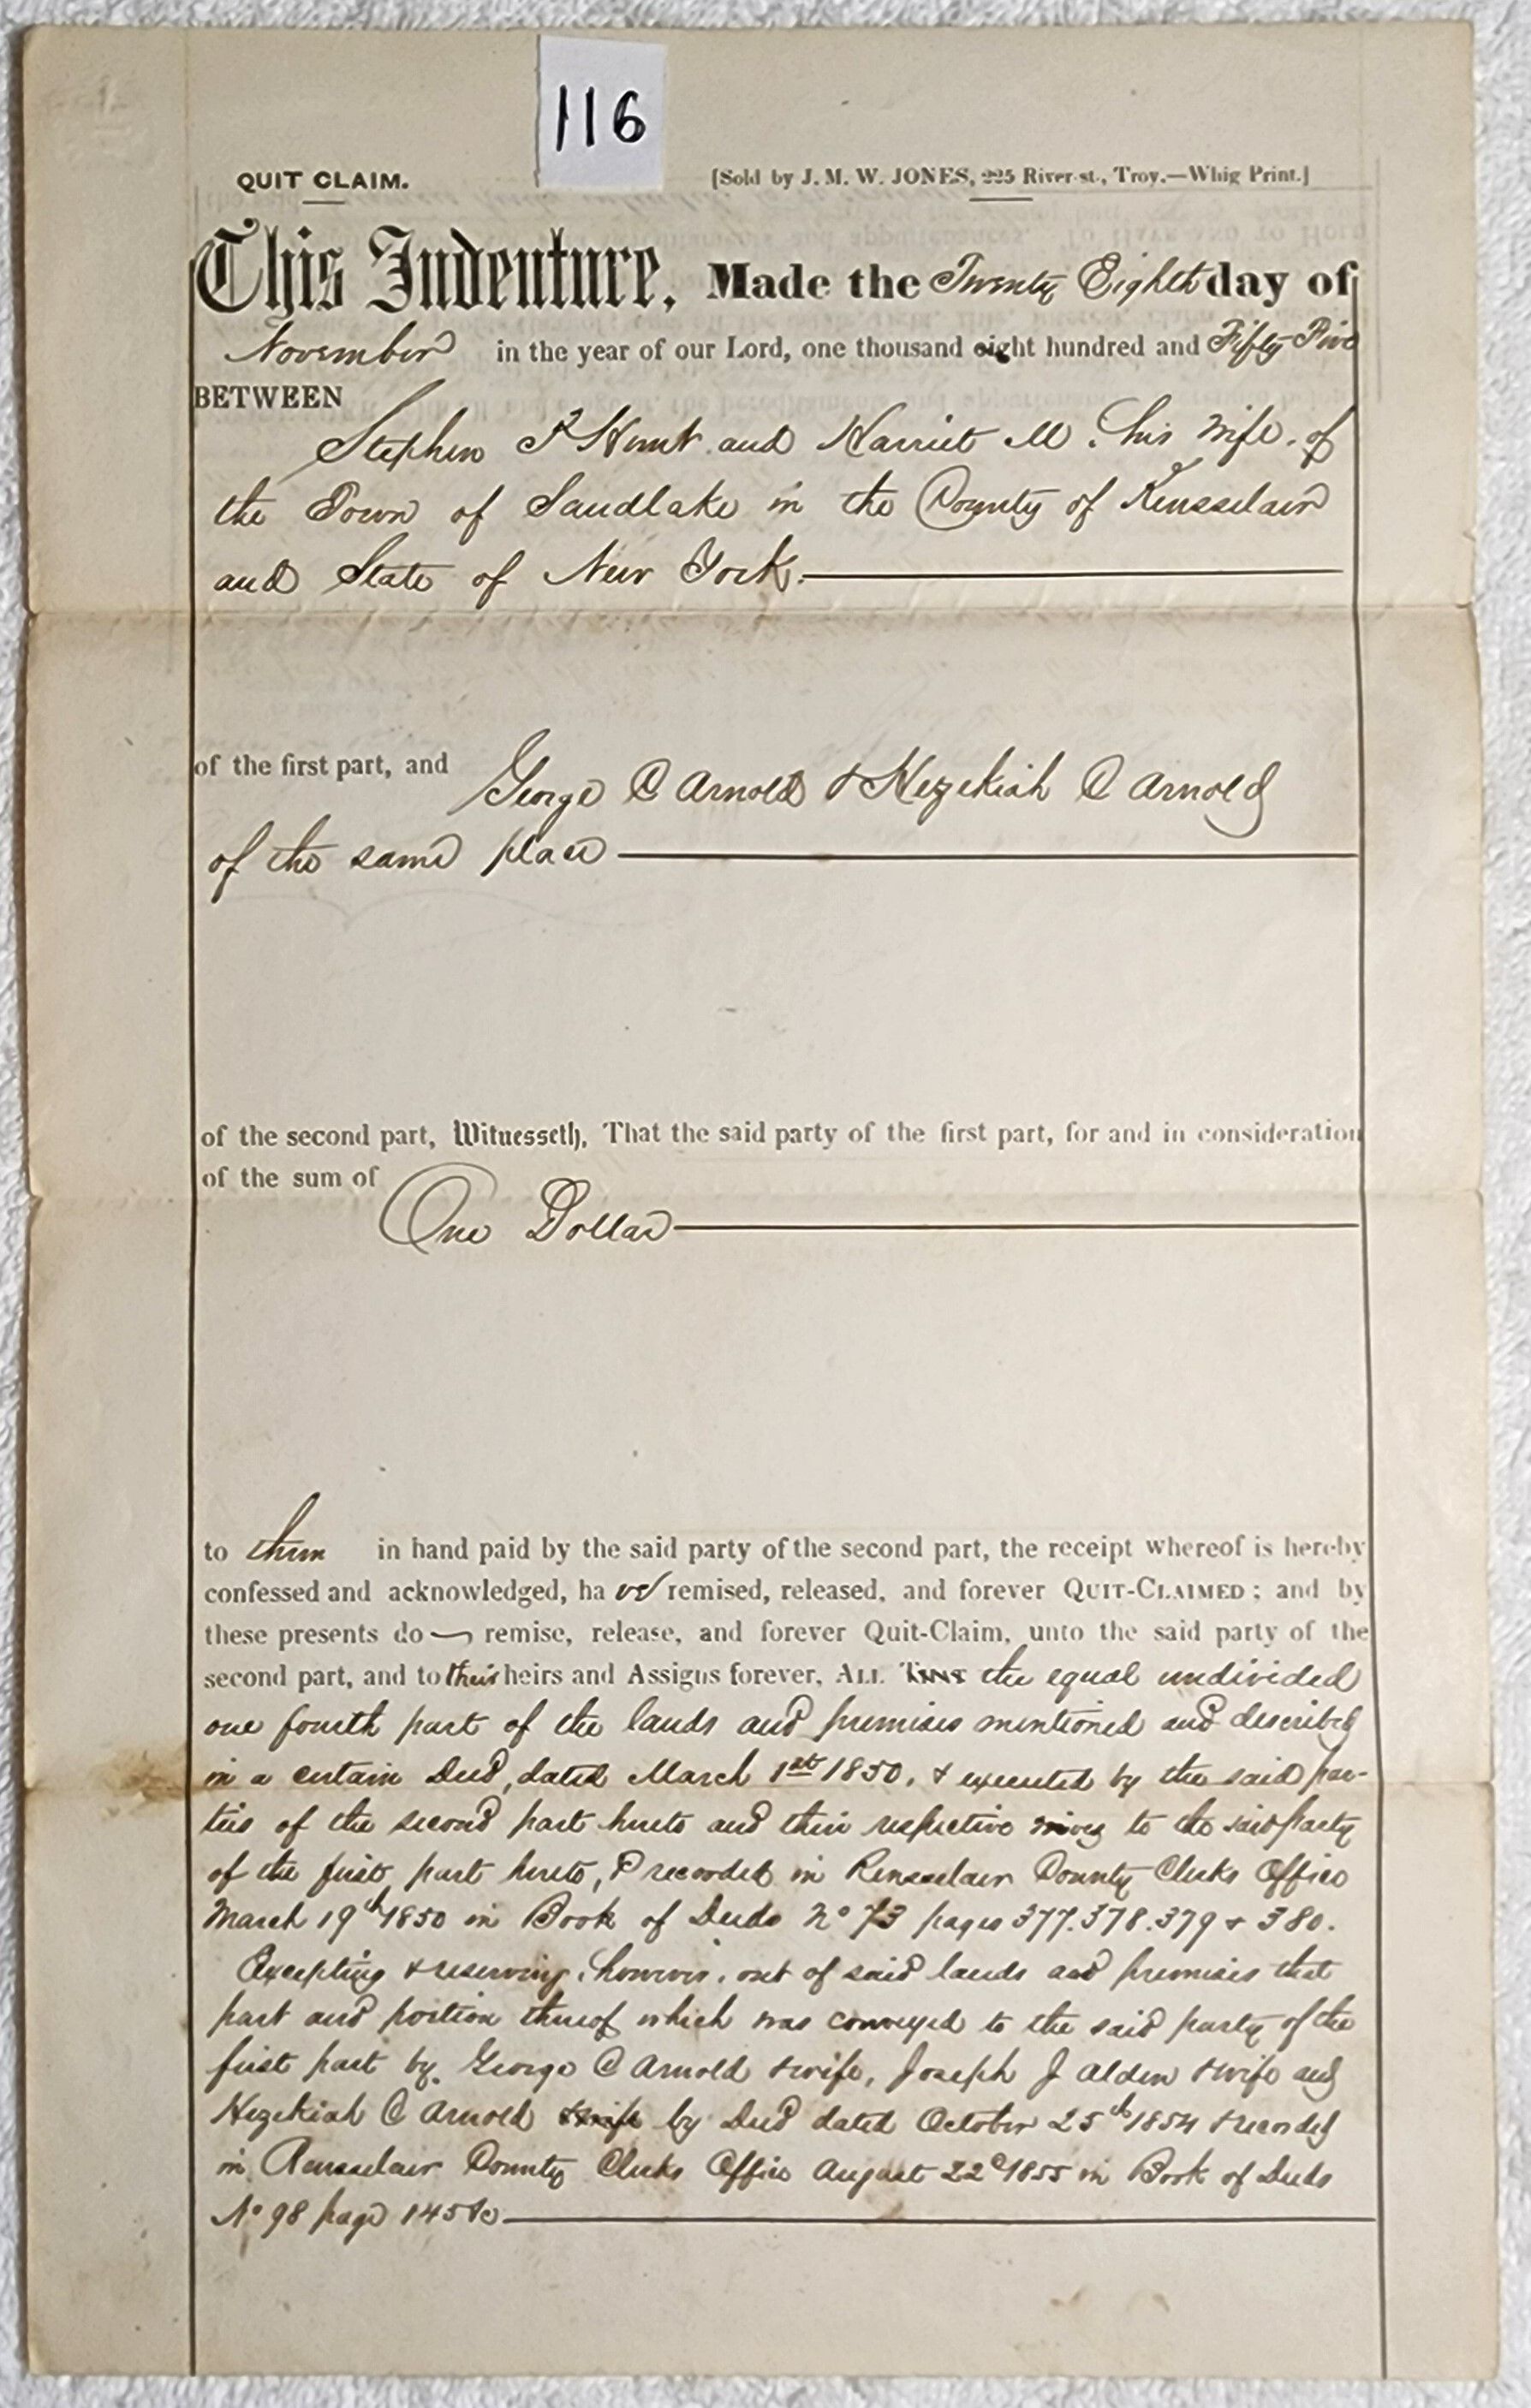 116
QUIT CLAIM. [Sold by J. M. W. JONES, 225 River-st., Troy.—Whig Print.]
This Indenture, Made the Twenty Eighth day of
November in the year of our Lord, one thousand eight hundred and Fifty Five
BETWEEN
Stephen F Hunt and Harriet M. his wife, of
the Town of Sandlake in the County of Rensselaer
and State of New York.
of the first part, and George C Arnold & Hezekiah C Arnold
of the same place
of the second part, Witnesseth, That the said party of the first part, for and in consideration
of the sum of
One Dollar
to them in hand paid by the said party of the second part, the receipt whereof is hereby
confessed and acknowledged, ha ve remised, released, and forever QUIT-CLAIMED; and by
these presents do remise, release, and forever Quit-Claim, unto the said party of the
second part, and to their heirs and Assigns forever, ALL the equal undivided
one fourth part of the lands and premises mentioned and described
in a certain Deed, dated March 1st 1850. & executed by the said par-
ties of the second part hereto and their respective wives to the said party
of the first part hereto, & recorded in Rensselaer County Clerks Office
March 19th 1850 in Book of Deeds No 73 pages 377.378.379 & 380.
Excepting & reserving, however, out of said lands and premises that
part and portion thereof which was conveyed to the said party of the
first part by George C Arnold & wife, Joseph J Alden & wife and
Hezekiah C Arnold & wife by Deed dated October 25th 1854 & recorded
in Rensselaer County Clerks Office August 22d 1855 in Book of Deeds
No 98 page 145 &c